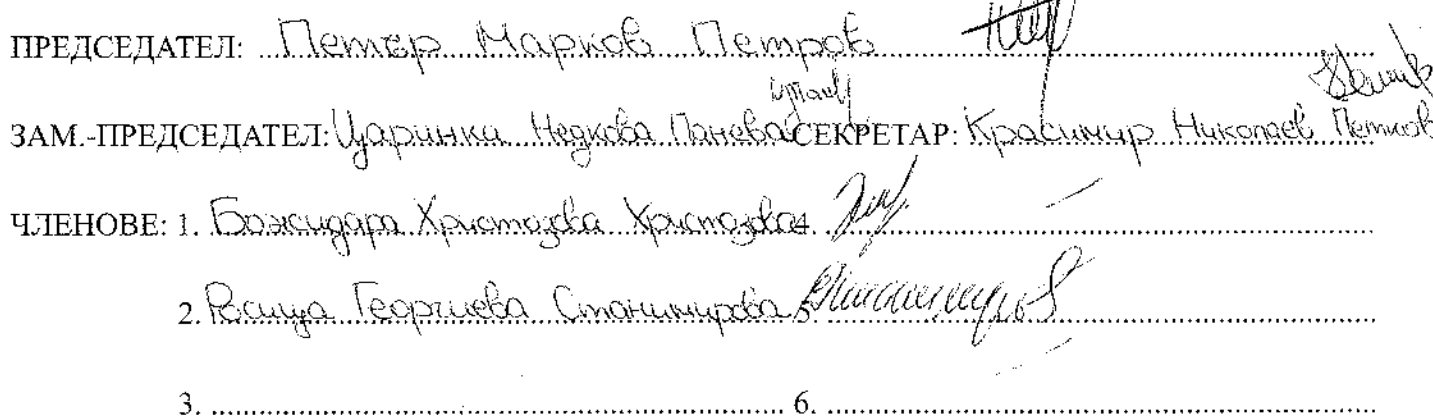 ПРЕДСЕДАТЕЛ: Петър Марков Петров
ЗАМ.-ПРЕДСЕДАТЕЛ: Царинка Недкова Панева СЕКРЕТАР: Красимир Николаев Петков
ЧЛЕНОВЕ: 1. Божидара Христозова Христозова 4.
2. Росица Георгиева Станимирова 5.
3. 6.